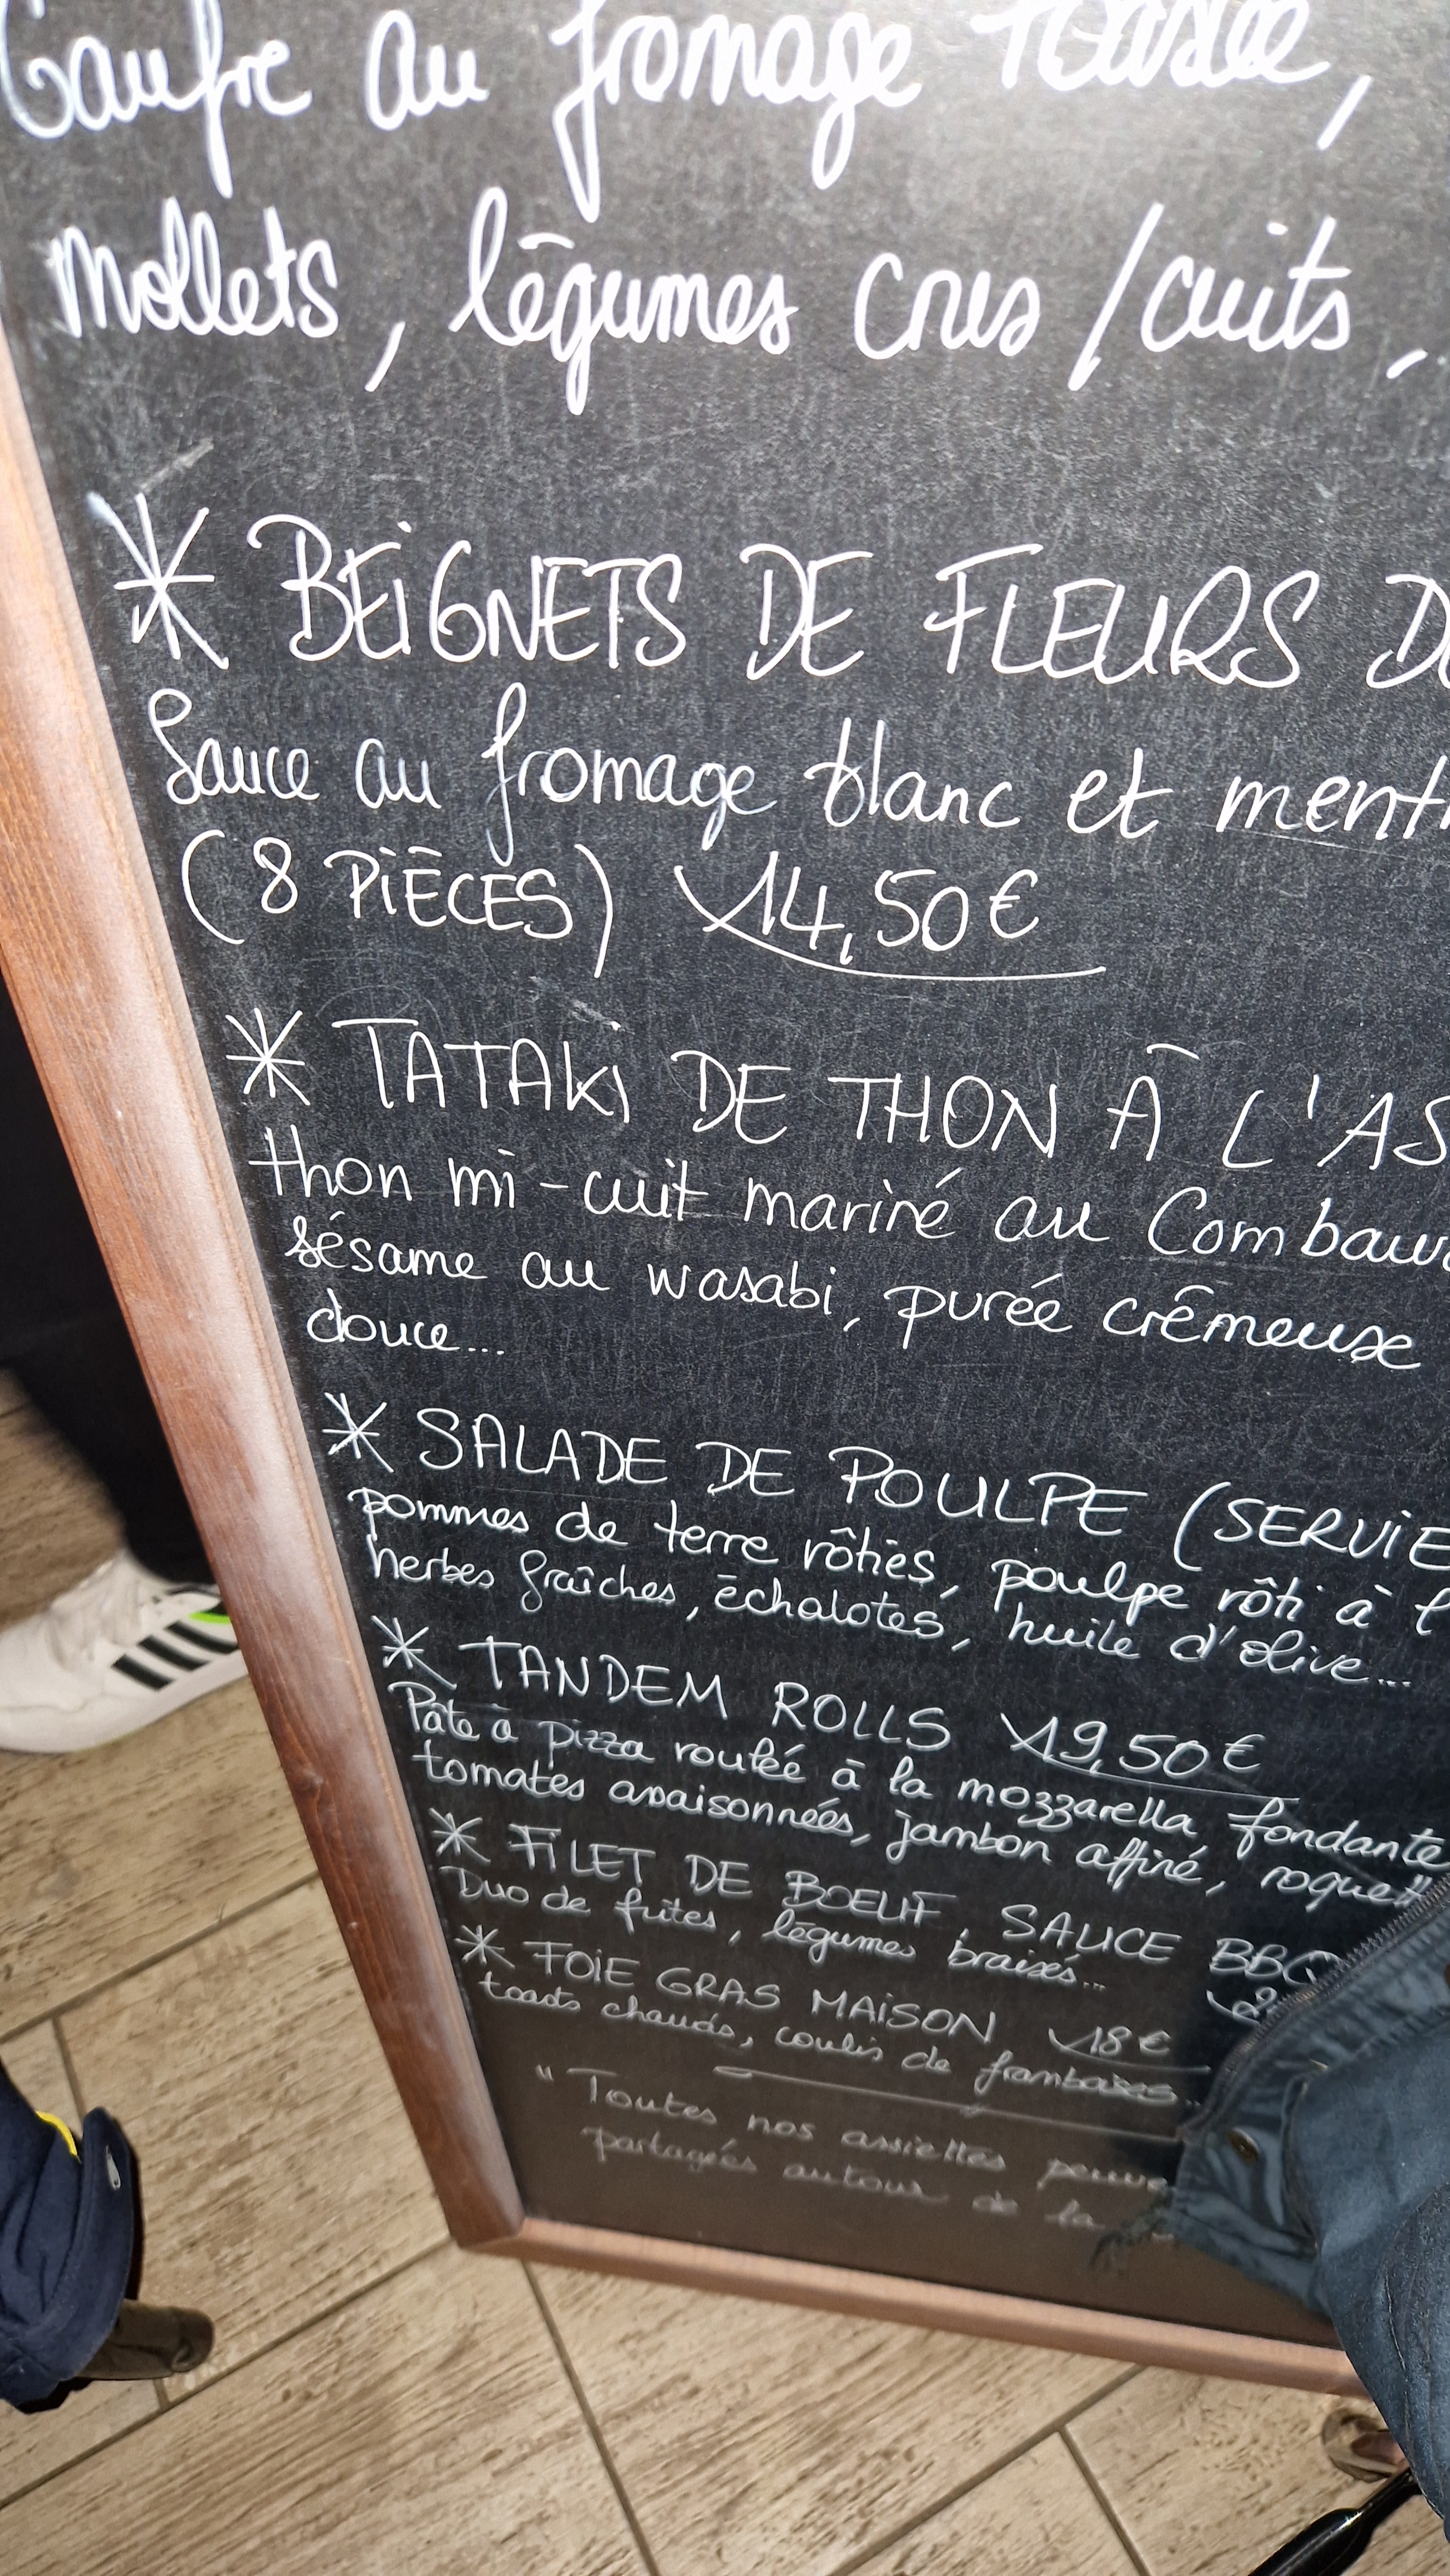 Gaufre au fromage
Mollets, légumes crus/cuits,
* BEIGNETS DE FLEURS D
Sauce au fromage blanc et menth
(8 PIÈCES) 14,50€
* TATAKI DE THON À L'AS
thon mi-cuit mariné au Combawa
sésame au wasabi, purée crêmeuse
douce...
* SALADE DE POULPE (SERVIE
pommes de terre rôties, poulpe rôti à l
herbes fraîches, échalotes, huile d'olive...
* TANDEM ROLLS 19,50€
Pâte à pizza roulée à la mozzarella fondante
tomates assaisonnées, jambon affiné, roquett
* FILET DE BOEUF, SAUCE BBQ
Duo de frites, légumes braisés...
* FOIE GRAS MAISON 18€
toasts chauds, coulis de framboises...
"Toutes nos assiettes peuve
partagées autour de la